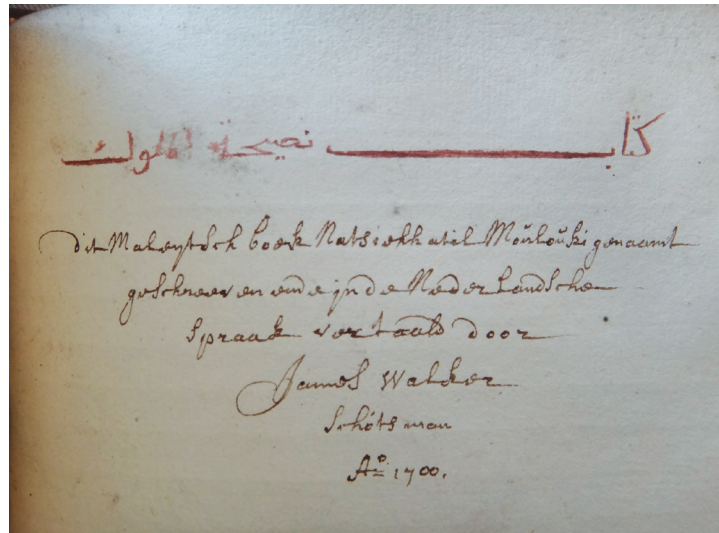 كتاب نصيحة الملوك
dit Maleytsch boek Natsiehhatil Moúloúki genaamt
geschreeven ende in de Nederlandsche
spraak vertaald door
James Walker
Schótsman
Aº 1700.